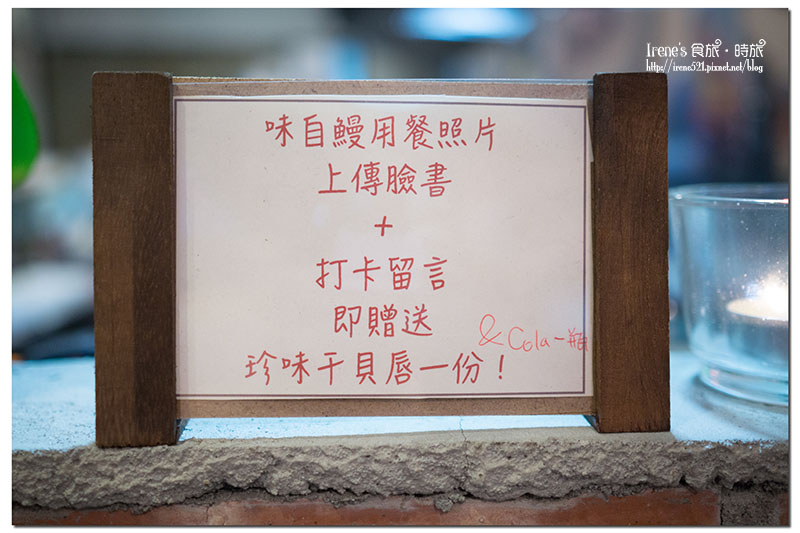 Irene's 食旅・時旅
http://irene521.pixnet.net/blog
味自鰻用餐照片
上傳臉書
+
打卡留言
即贈送
& Cola一瓶
珍味干貝唇一份！